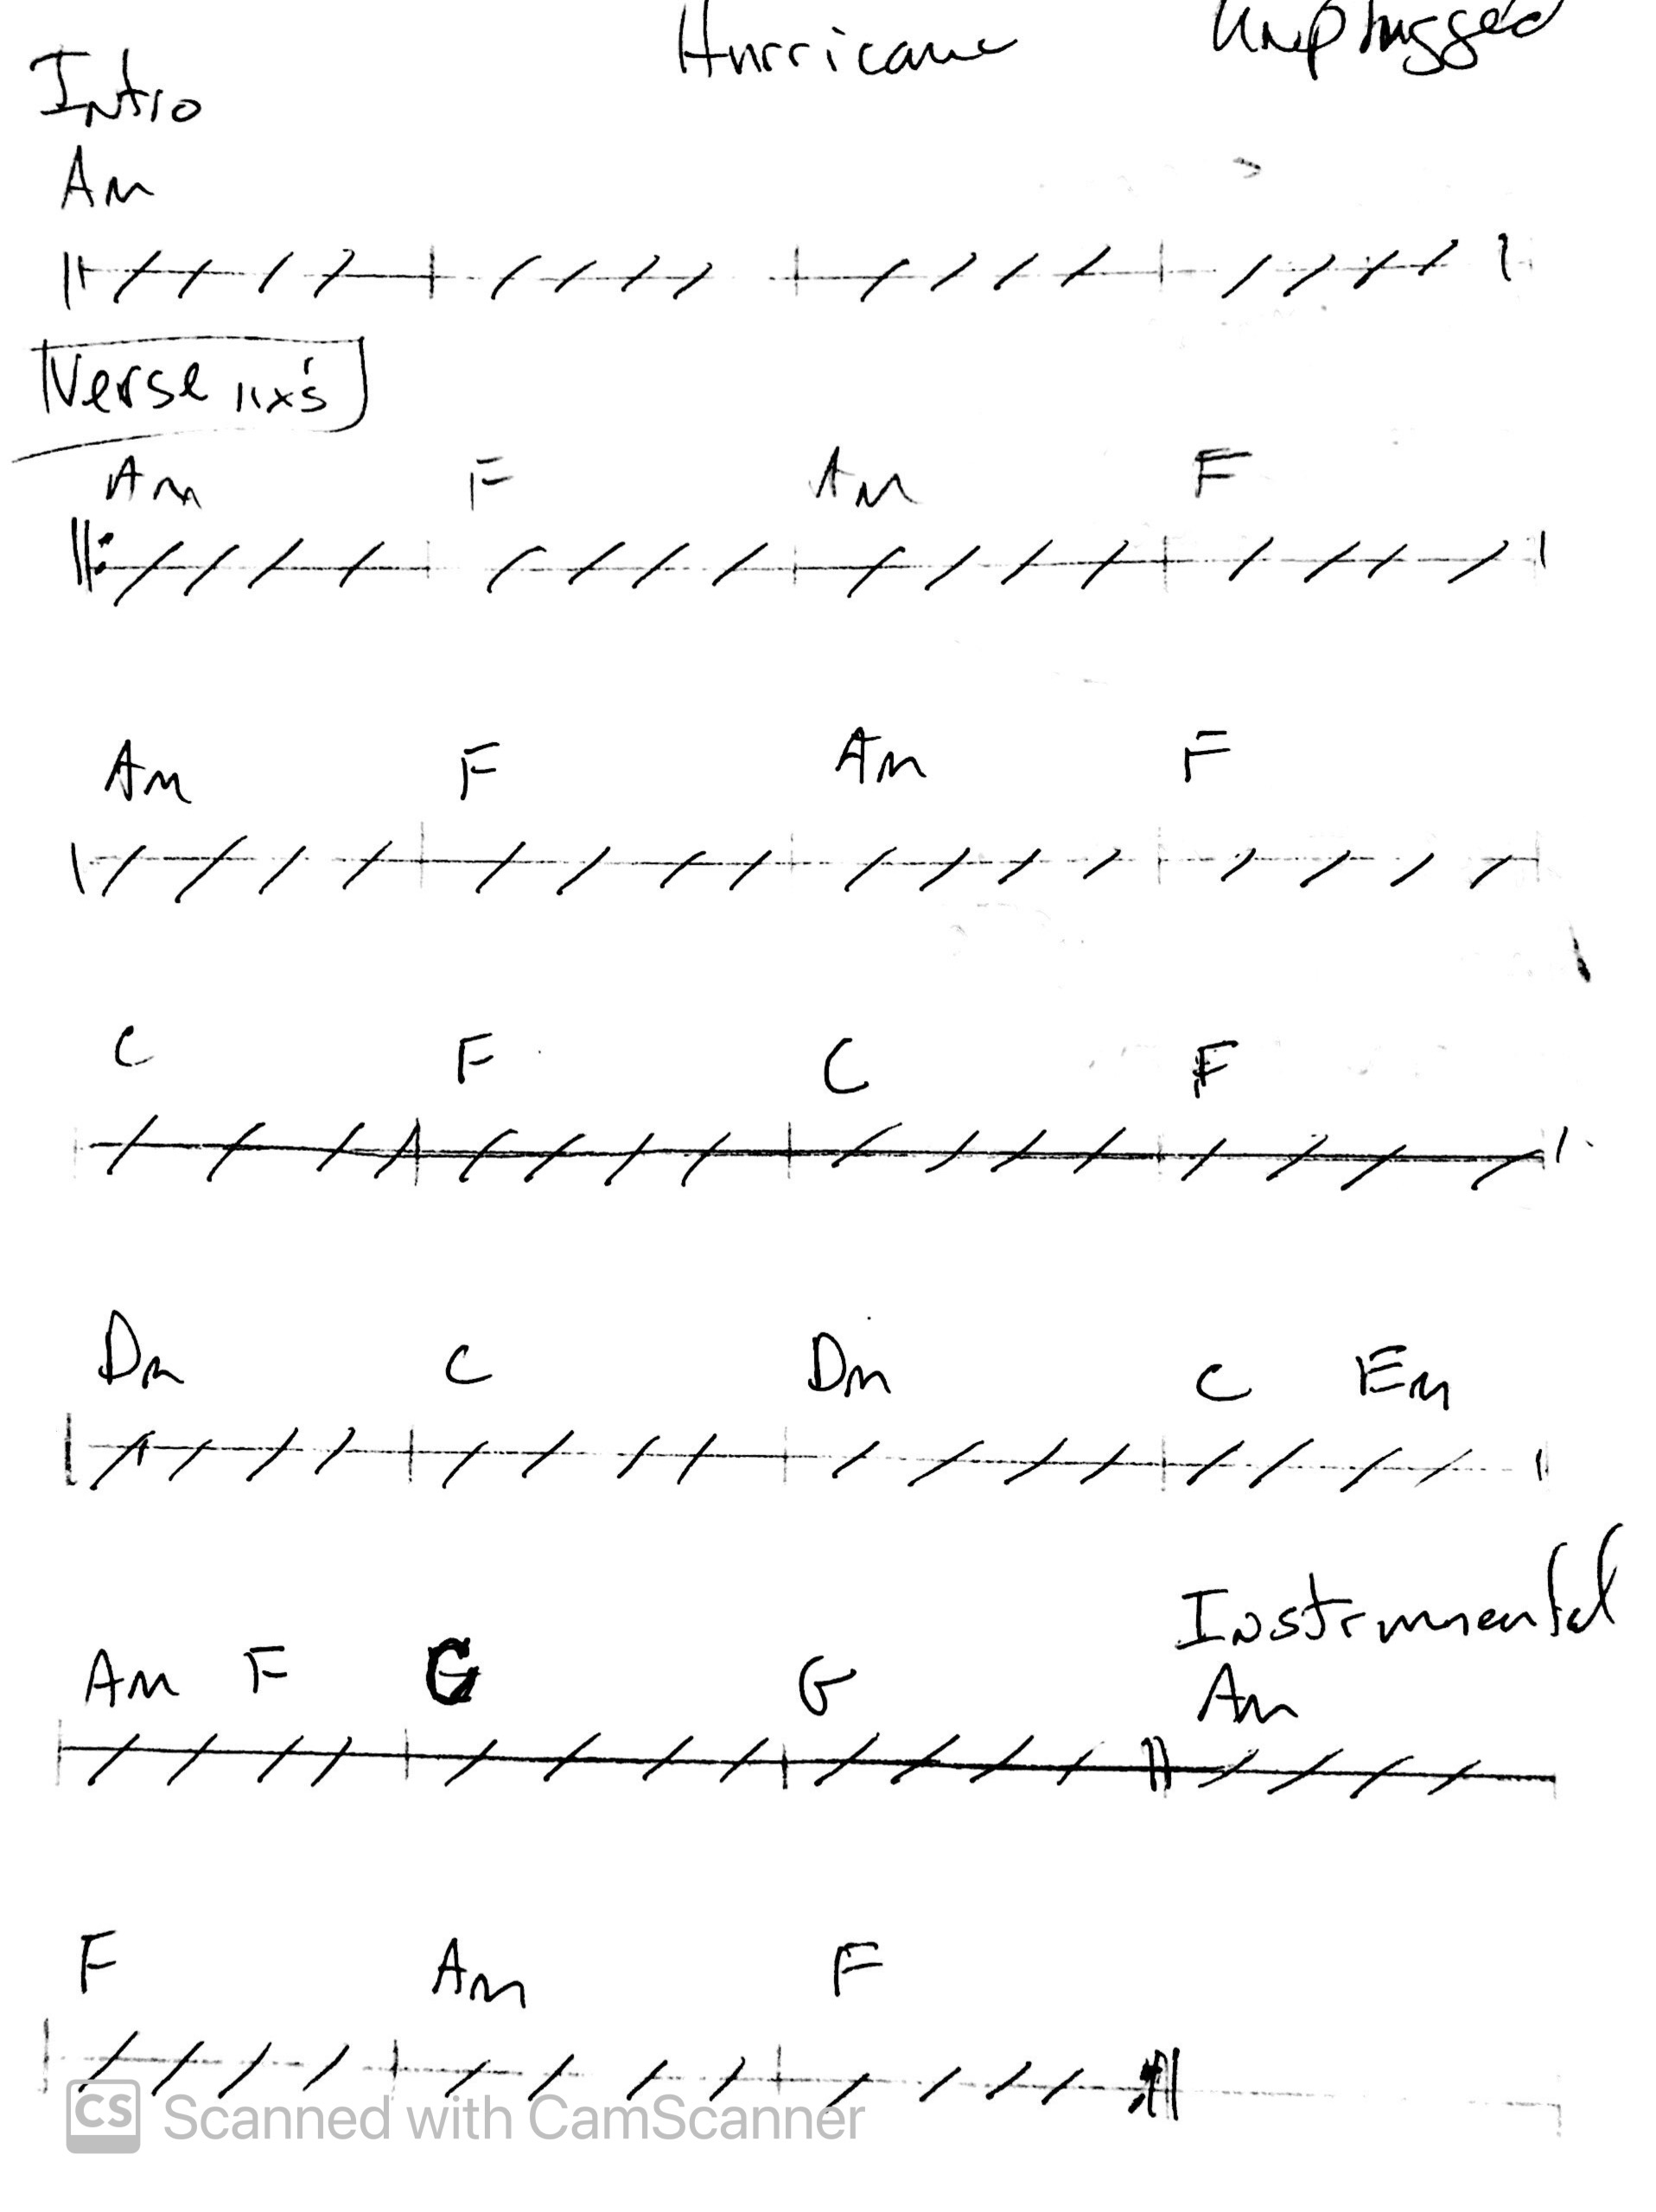 Hurricane Unplugged
Intro
Am
Verse 11x's
Am F Am F
Am F Am F
C F C F
Dm C Dm C Em
Instrumental
Am F G G Am
F Am F
CS Scanned with CamScanner